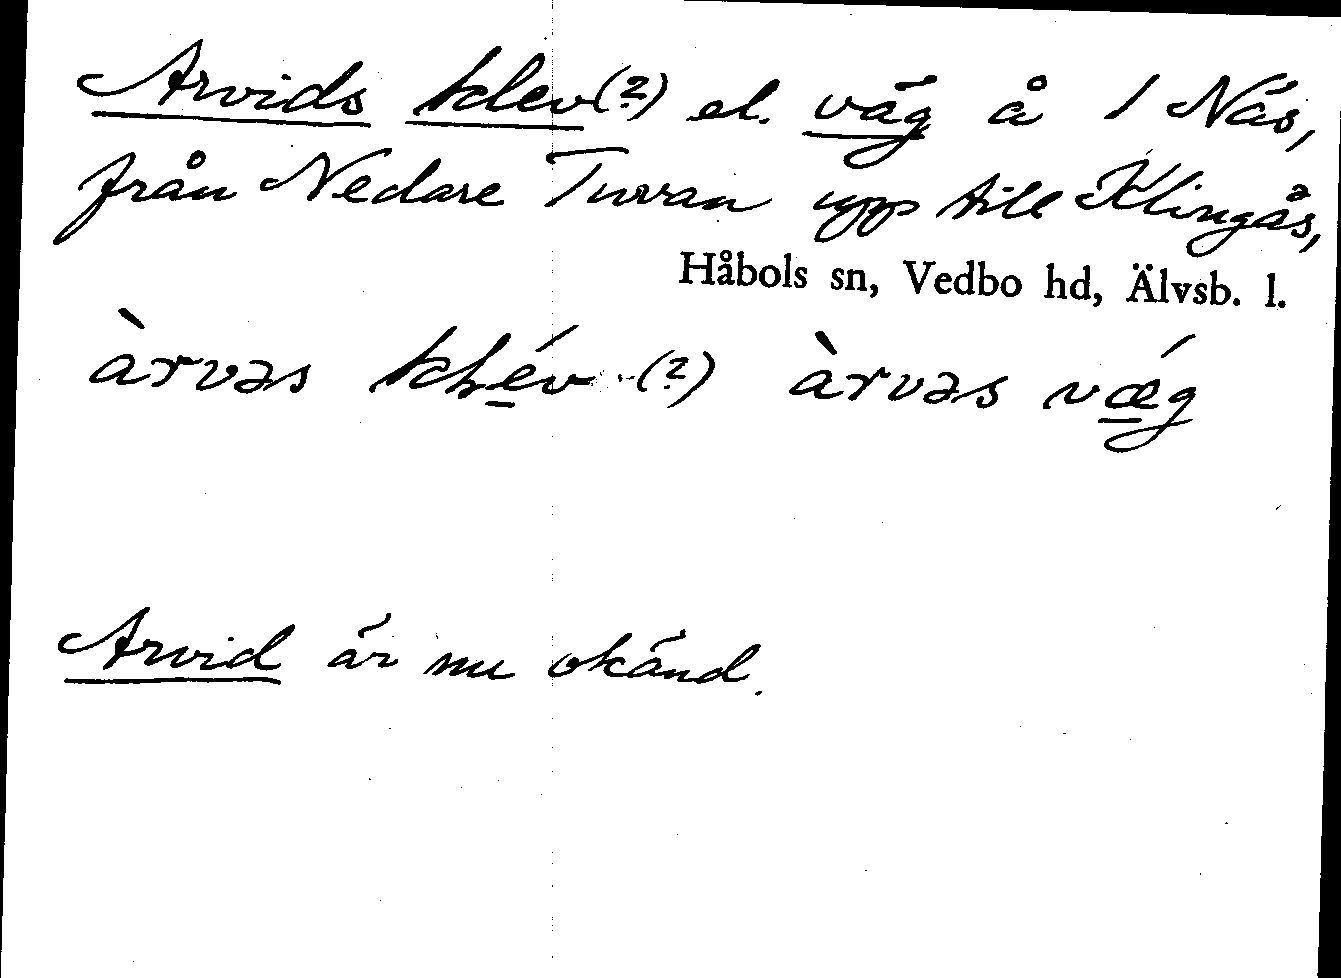 Arvids klev(?) el. väg å 1 Näs,
från Nedare Turran upp till Klingås,
Håbols sn, Vedbo hd, Älvsb. l.
àrvəs klév (?) àrvəs vǽg
Arvid är nu okänd.